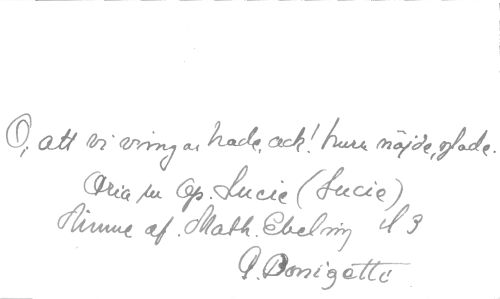 O, att vi vingar hade, ack! huru nöjde, glade.
Aria ur Op. Lucie (Lucie)
Minne af Math. Ebeling
G. Donizetti